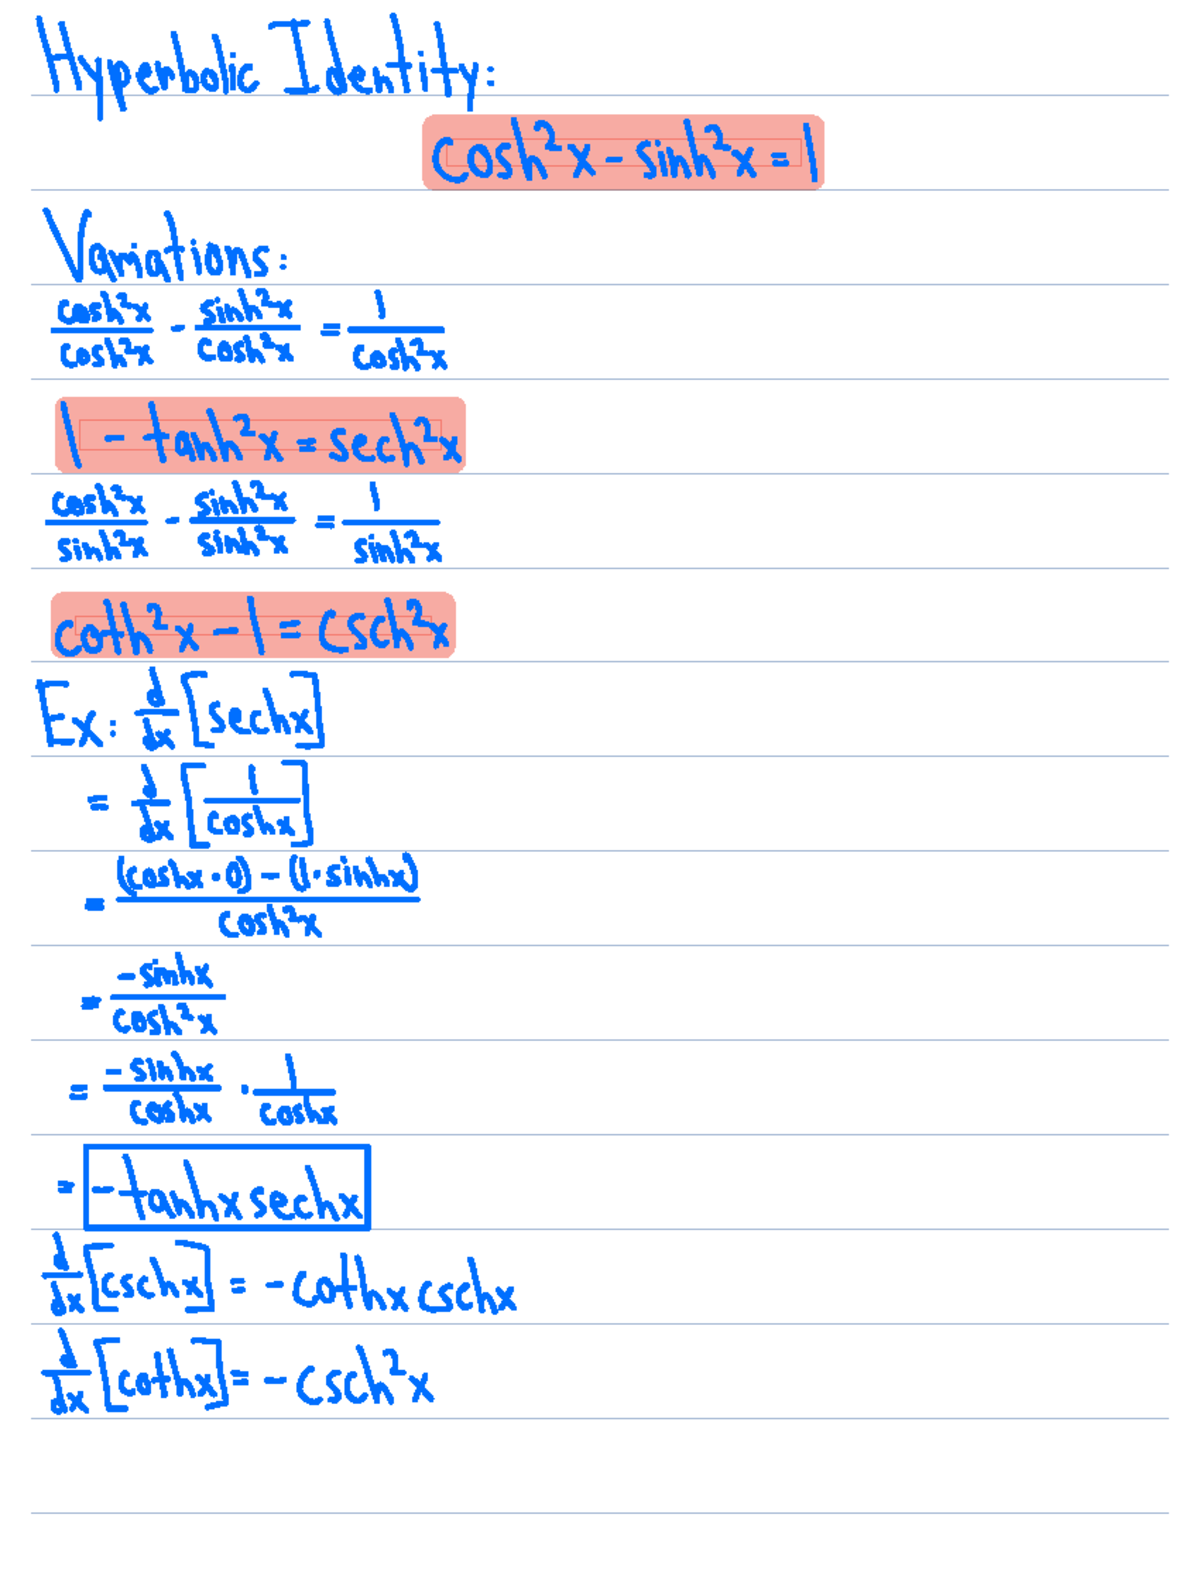 Hyperbolic Identity:
cosh²x - sinh²x = 1
Variations:
cosh²x/cosh²x - sinh²x/cosh²x = 1/cosh²x
1 - tanh²x = sech²x
cosh²x/sinh²x - sinh²x/sinh²x = 1/sinh²x
coth²x - 1 = csch²x
Ex: d/dx [sechx]
= d/dx [1/coshx]
= (coshx · 0) - (1 · sinhx)/cosh²x
= -sinhx/cosh²x
= -sinhx/coshx · 1/coshx
= -tanhx sechx
d/dx [cschx] = -cothx cschx
d/dx [cothx] = -csch²x